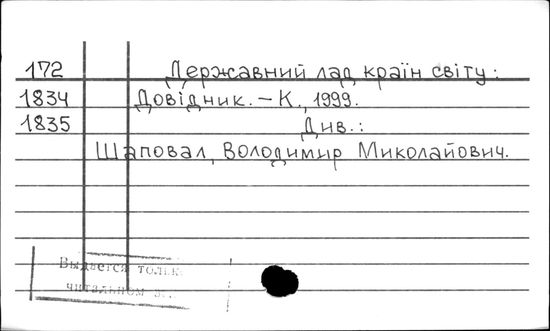 172 Державний лад країн світу:
1834 Довідник. – К., 1999.
1835 Див.:
Шаповал, Володимир Миколайович.
Выдается только
читальном